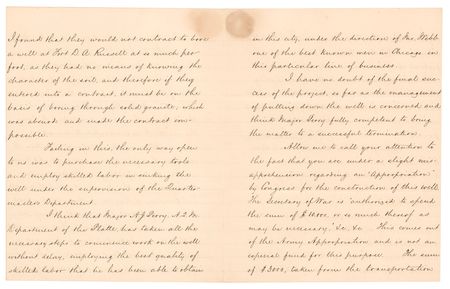 I found that they would not contract to bore
a well at Fort D. A. Russell at so much per
foot, as they had no means of knowing the
character of the soil, and therefore if they
entered into a contract, it must be on the
basis of boring through solid granite, which
was absurd and made the contract im-
possible.
Failing in this, the only way open
to us was to purchase the necessary tools
and employ skilled labor in sinking the
well under the supervision of the Quarter-
master Department.
I think that Major A. J. Perry, A. Q. M.
Department of the Platte, has taken all the
necessary steps to commence work on the well
without delay, employing the best quality of
skilled labor that he has been able to obtain
in this city, under the direction of Mr.
one of the best known men in Chicago in
this particular line of business.
I have no doubt of the final suc-
cess of the project, so far as the management
of putting down the well is concerned and
think Major Perry fully competent to bring
the matter to a successful termination.
Allow me to call your attention to
the fact that you are under a slight mis-
apprehension regarding an "Appropriation"
by Congress for the construction of this well.
The Secretary of War is authorized to spend
the sum of or so much thereof as
may be necessary, &c. &c. This comes out
of the Army Appropriation and is not an
especial fund for this purpose. The sum
of $3000, taken from the transportation